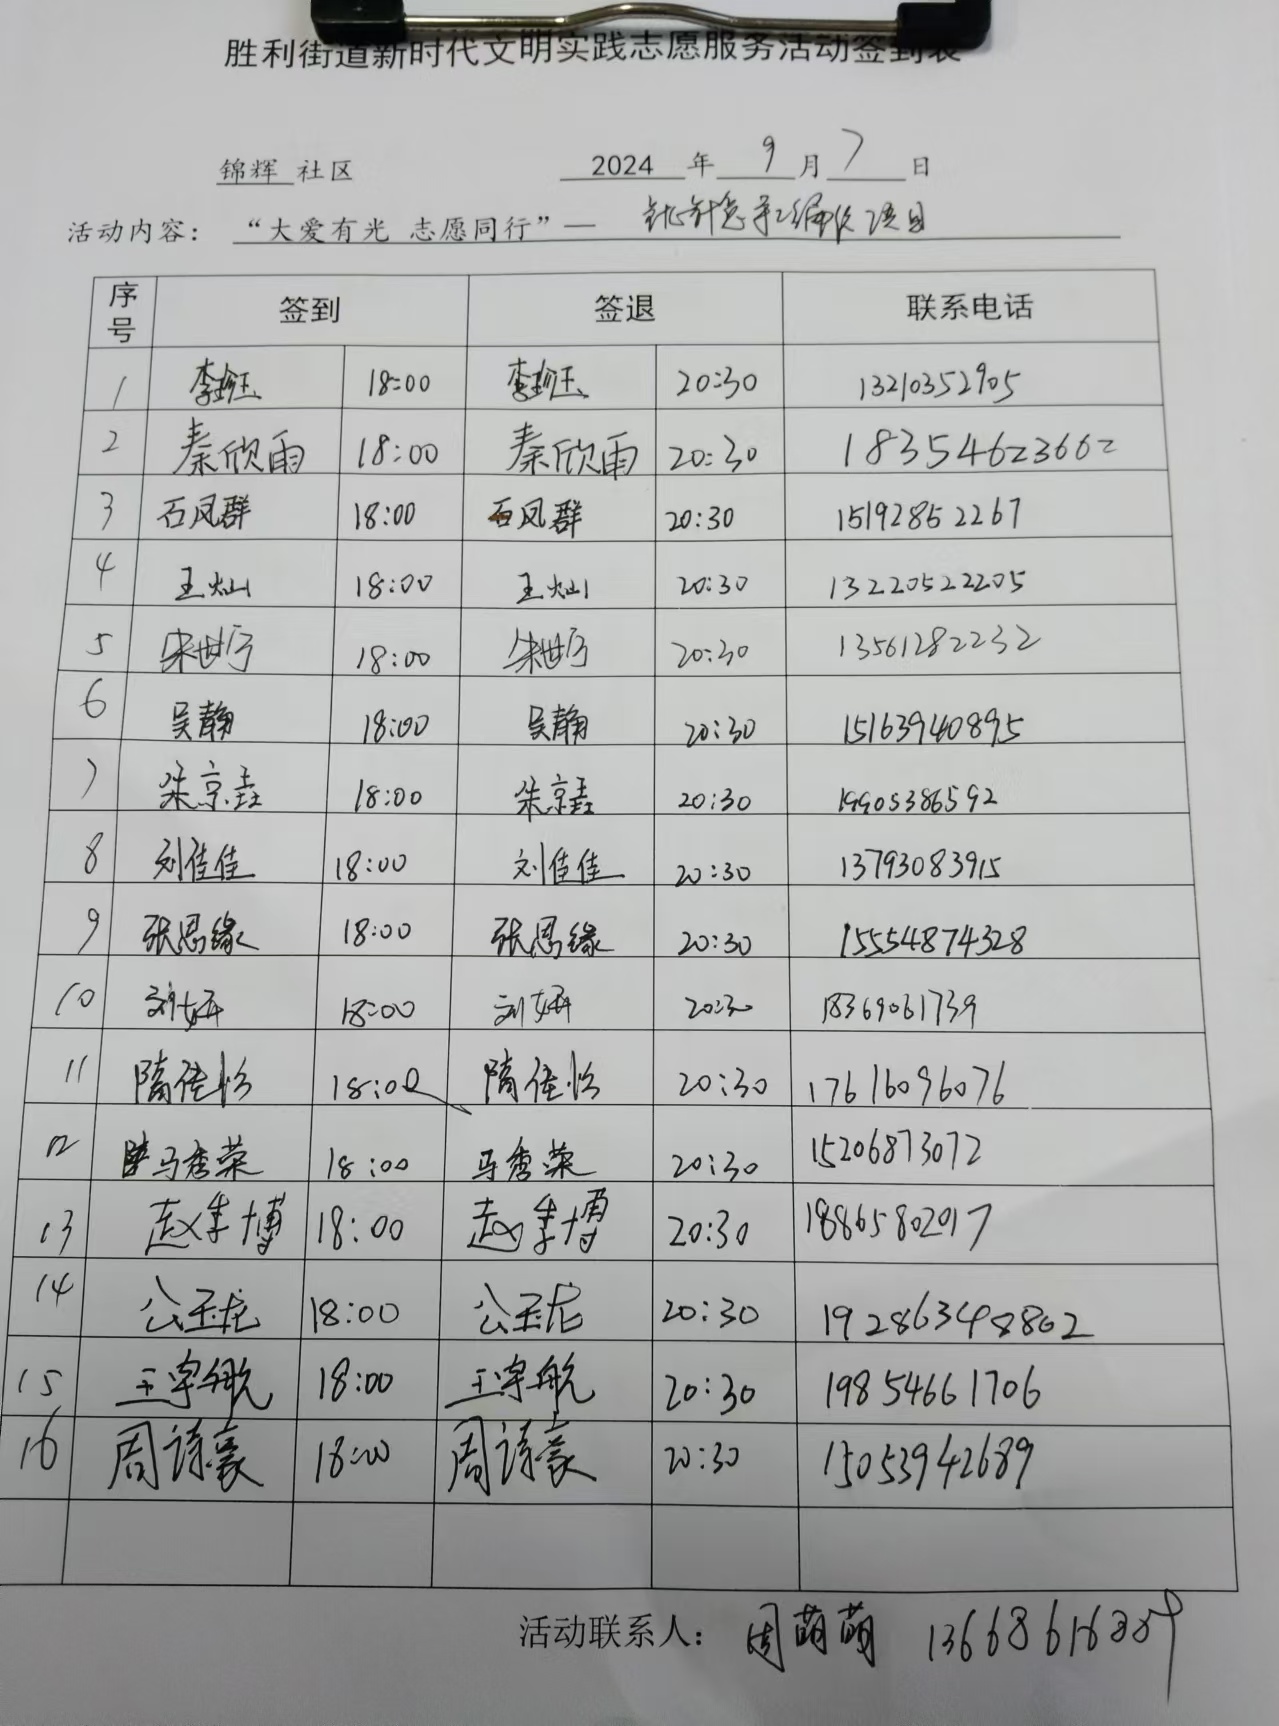 胜利街道新时代文明实践志愿服务活动签到表
锦辉 社区 2024 年 9 月 7 日
活动内容： “大爱有光 志愿同行”— 项目
序号 签到 签退 联系电话
1 李珍玉 18:00 李珍玉 20:30 13210352905
2 秦欣雨 18:00 秦欣雨 20:30 18354623662
3 石凤群 18:00 石凤群 20:30 15192852267
4 王灿 18:00 王灿 20:30 13220522205
5 宋世宁 18:00 宋世宁 20:30 13561282232
6 吴静 18:00 吴静 20:30 15163940895
7 朱京垚 18:00 朱京垚 20:30 19905386592
8 刘佳佳 18:00 刘佳佳 20:30 13793083915
9 张恩缘 18:00 张恩缘 20:30 15554874328
10 刘妍 18:00 刘妍 20:30 18369061739
11 隋佳怡 18:00 隋佳怡 20:30 17616096076
12 马秀荣 18:00 马秀荣 20:30 15206873072
13 赵隼博 18:00 赵隼博 20:30 18865802017
14 公玉龙 18:00 公玉龙 20:30 19286348802
15 王宇航 18:00 王宇航 20:30 19854661706
16 周诗豪 18:00 周诗豪 20:30 15053942689
活动联系人： 周萌萌